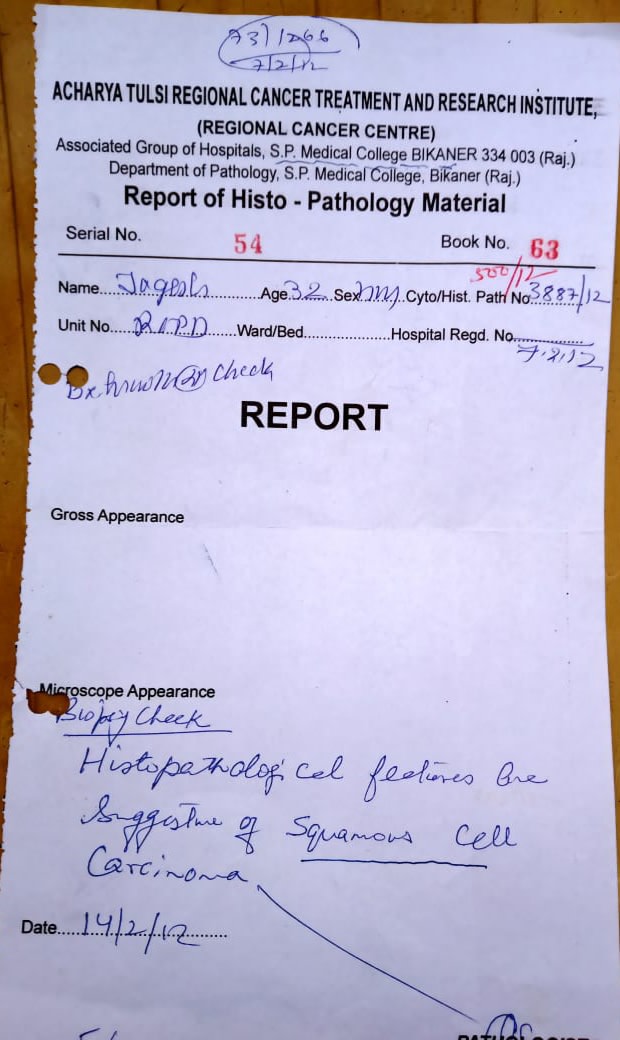 73/1266
7/2/12
ACHARYA TULSI REGIONAL CANCER TREATMENT AND RESEARCH INSTITUTE,
(REGIONAL CANCER CENTRE)
Associated Group of Hospitals, S.P. Medical College BIKANER 334 003 (Raj.)
Department of Pathology, S.P. Medical College, Bikaner (Raj.)
Report of Histo - Pathology Material
Serial No. 54 Book No. 63
500/12
Name....Jagesh....Age.32..Sex.M..Cyto/Hist. Path No.3887/12
Unit No.............Ward/Bed....................Hospital Regd. No.................
7.2.12
Bx. Check
REPORT
Gross Appearance
Microscope Appearance
Biopsy Check
Histopathological features are
Suggestive of Squamous Cell
Carcinoma
Date.....14/2/12.......
PATHOLOGIST